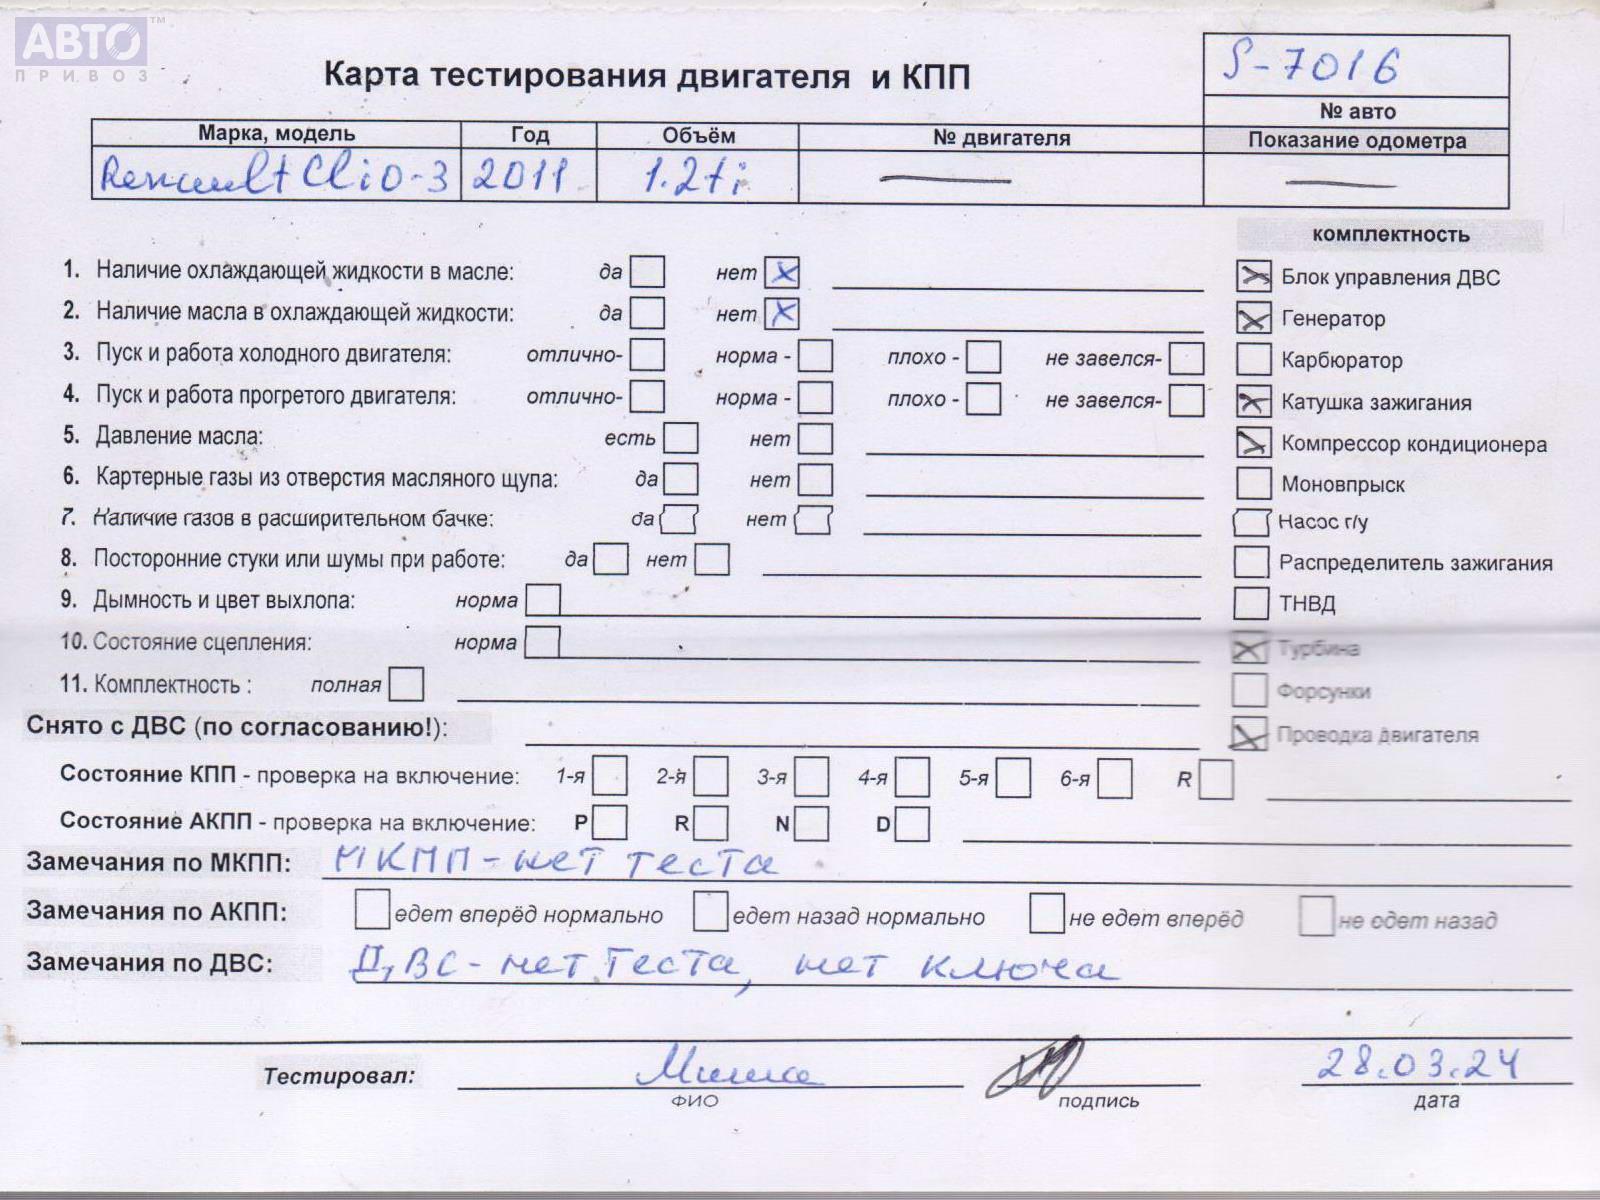 АВТО™
ПРИВОЗ
Карта тестирования двигателя и КПП
S-7016
№ авто
Марка, модель Год Объём № двигателя Показание одометра
Renault Clio-3 2011 1.2ti — —
комплектность
1. Наличие охлаждающей жидкости в масле: да нет X
Блок управления ДВС
2. Наличие масла в охлаждающей жидкости: да нет X
Генератор
3. Пуск и работа холодного двигателя: отлично- норма - плохо - не завелся-
Карбюратор
4. Пуск и работа прогретого двигателя: отлично- норма - плохо - не завелся-
Катушка зажигания
5. Давление масла: есть нет
Компрессор кондиционера
6. Картерные газы из отверстия масляного щупа: да нет
Моновпрыск
7. Наличие газов в расширительном бачке: да нет
Насос г/у
8. Посторонние стуки или шумы при работе: да нет
Распределитель зажигания
9. Дымность и цвет выхлопа: норма
ТНВД
10. Состояние сцепления: норма
Турбина
11. Комплектность : полная
Форсунки
Снято с ДВС (по согласованию!):
Проводка двигателя
Состояние КПП - проверка на включение: 1-я 2-я 3-я 4-я 5-я 6-я R
Состояние АКПП - проверка на включение: P R N D
Замечания по МКПП: МКПП - нет теста
Замечания по АКПП: едет вперёд нормально едет назад нормально не едет вперёд не едет назад
Замечания по ДВС: ДВС - нет теста, нет ключа
Тестировал: Миша 28.03.24
ФИО подпись дата